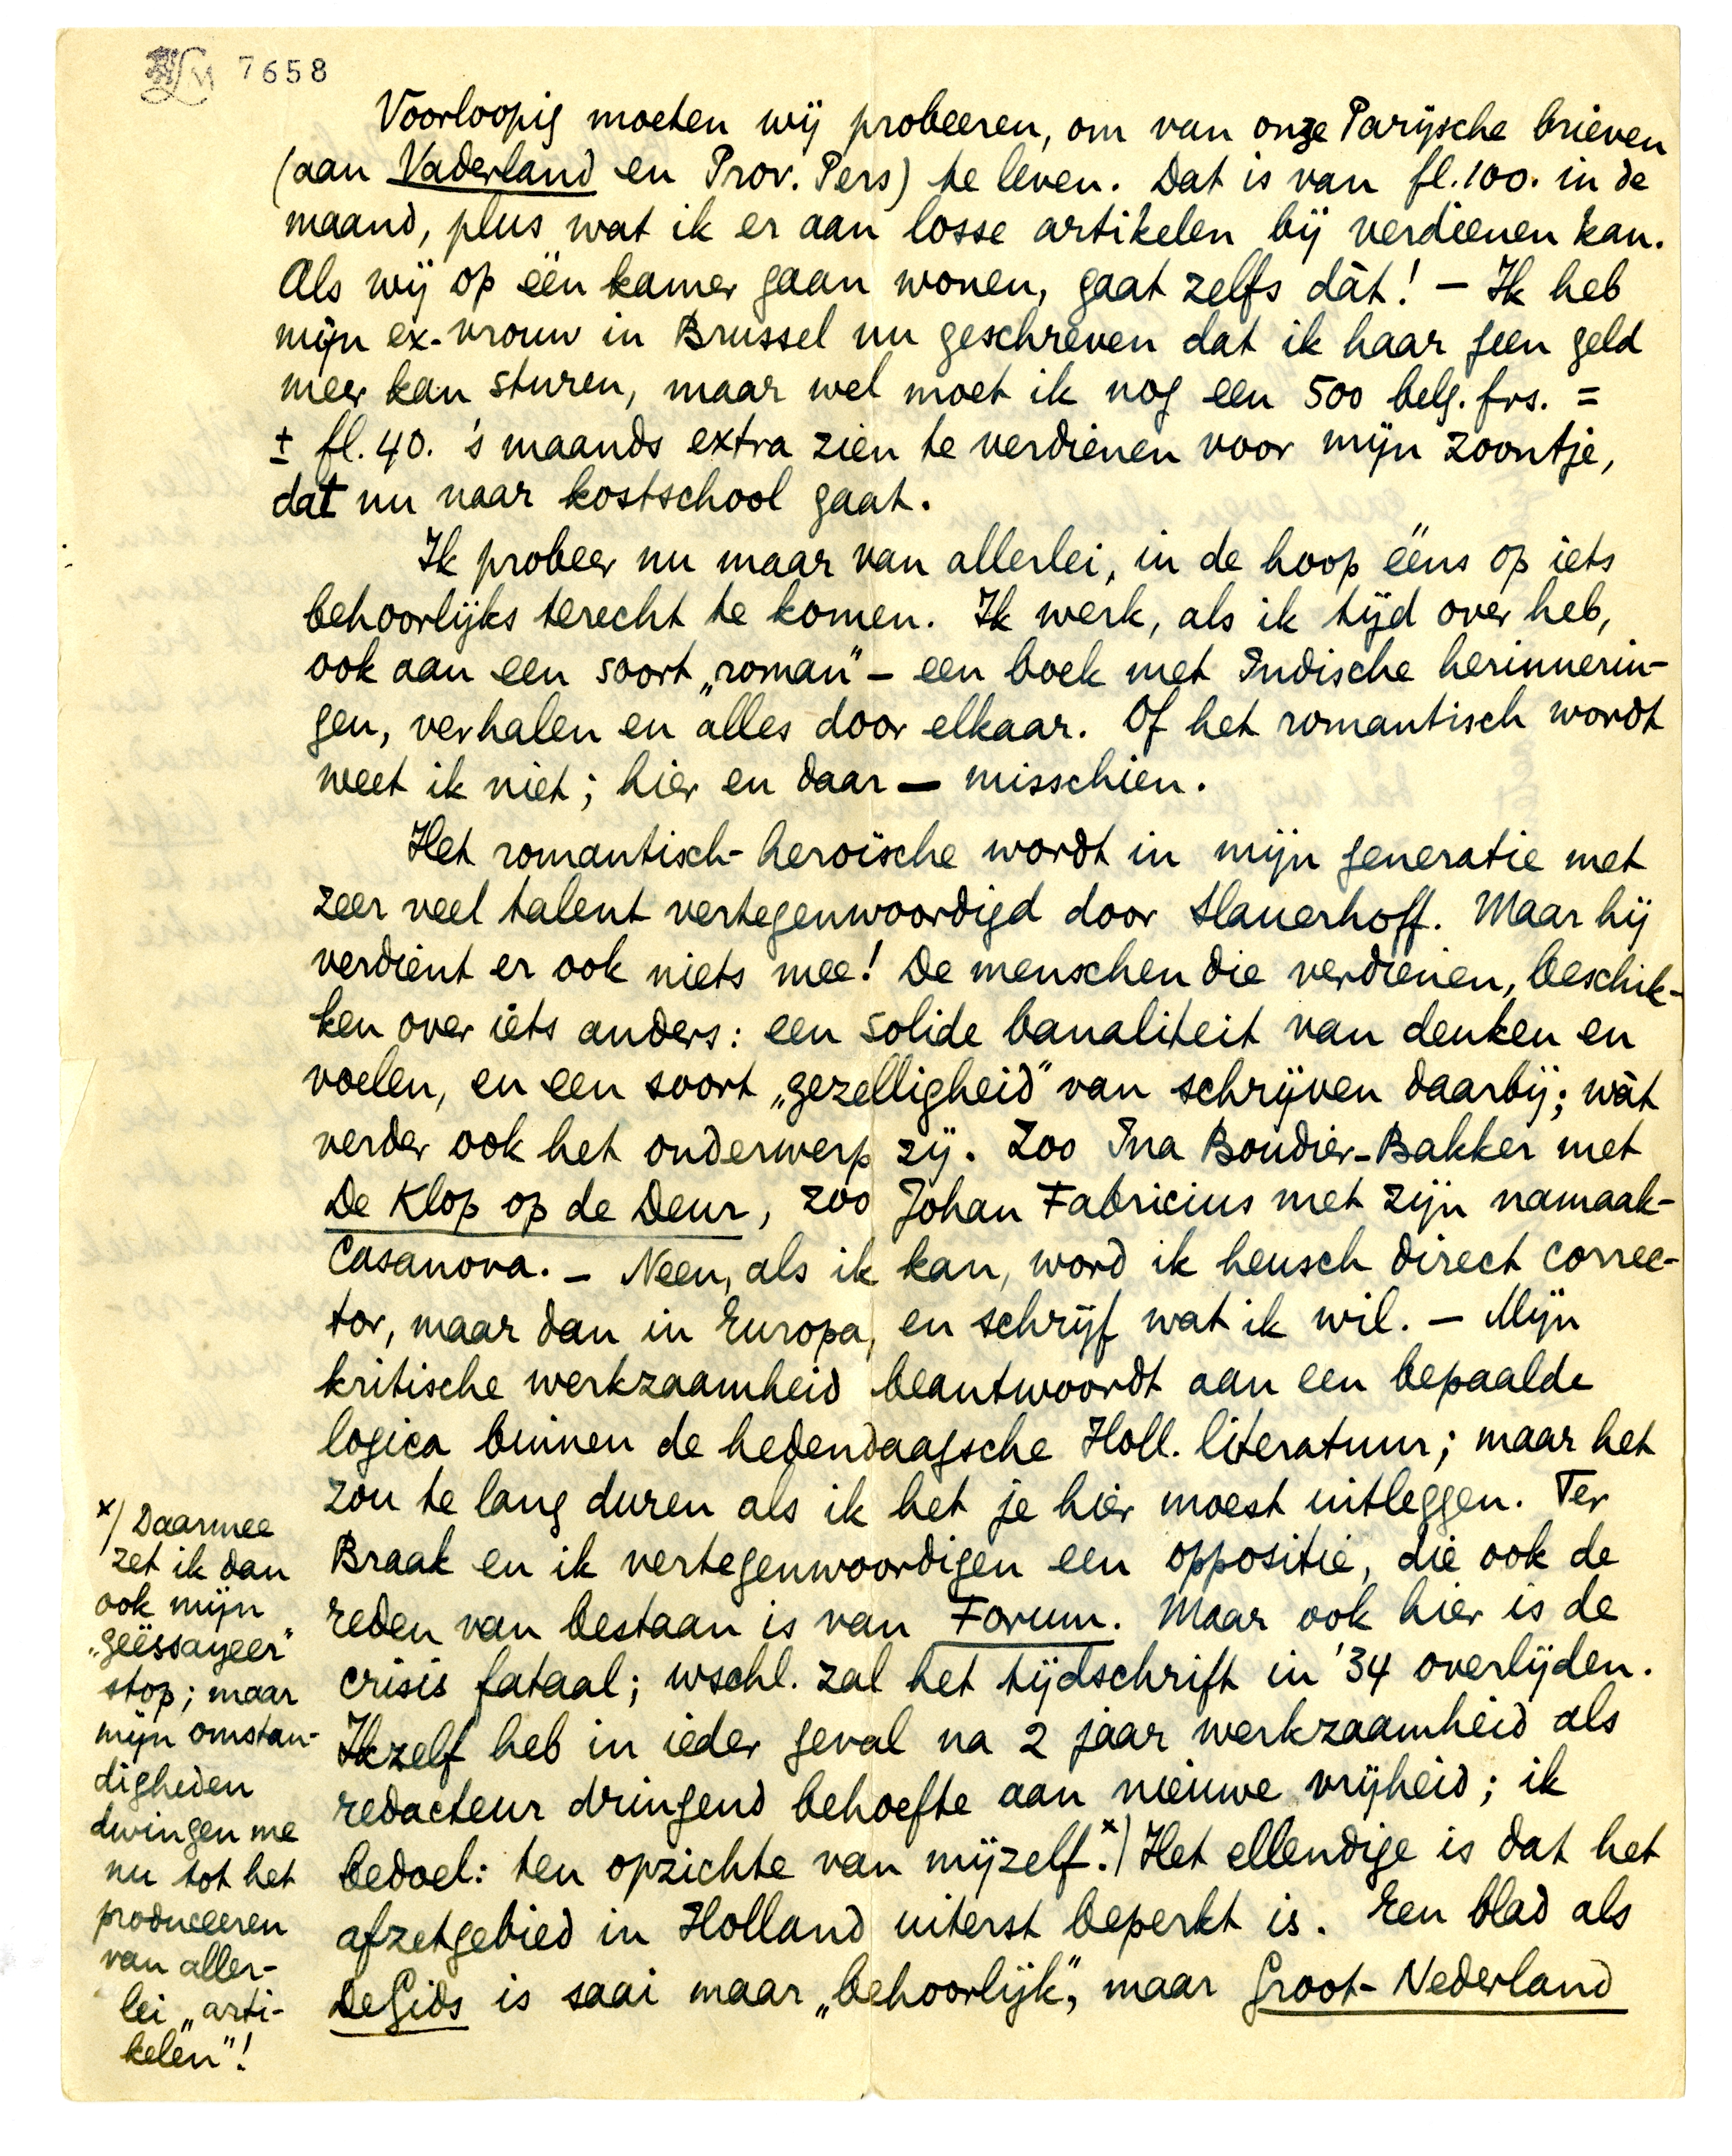 7658
Voorloopig moeten wij probeeren, om van onze Parijsche brieven
(aan Vaderland en Prov. Pers) te leven. Dat is van fl. 100. in de
maand, plus wat ik er aan losse artikelen bij verdienen kan.
Als wij op één kamer gaan wonen, gaat zelfs dàt! – Ik heb
mijn ex-vrouw in Brussel nu geschreven dat ik haar geen geld
meer kan sturen, maar wel moet ik nog een 500 belg. frs. =
± fl. 40. 's maands extra zien te verdienen voor mijn zoontje,
dat nu naar kostschool gaat.
Ik probeer nu maar van allerlei, in de hoop ééns op iets
behoorlijks terecht te komen. Ik werk, als ik tijd over heb,
ook aan een soort „roman” – een boek met Indische herinnerin-
gen, verhalen en alles door elkaar. Of het romantisch wordt
weet ik niet; hier en daar – misschien.
Het romantisch-heroïsche wordt in mijn generatie met
zeer veel talent vertegenwoordigd door Slauerhoff. Maar hij
verdient er ook niets mee! De menschen die verdienen, beschik-
ken over iets anders: een solide banaliteit van denken en
voelen, en een soort „gezelligheid” van schrijven daarbij; wàt
verder ook het onderwerp zij. Zoo Ina Boudier-Bakker met
De Klop op de Deur, zoo Johan Fabricius met zijn namaak-
Casanova. – Neen, als ik kan, word ik heusch direct correc-
tor, maar dan in Europa, en schrijf wat ik wil. – Mijn
kritische werkzaamheid beantwoordt aan een bepaalde
logica binnen de hedendaagsche Holl. literatuur; maar het
zou te lang duren als ik het je hier moest uitleggen. Ter
Braak en ik vertegenwoordigen een oppositie, die ook de
reden van bestaan is van Forum. Maar ook hier is de
crisis fataal; wschl. zal het tijdschrift in '34 overlijden.
Ikzelf heb in ieder geval na 2 jaar werkzaamheid als
redacteur dringend behoefte aan nieuwe vrijheid; ik
bedoel: ten opzichte van mijzelf.x) Het ellendige is dat het
afzetgebied in Holland uiterst beperkt is. Een blad als
De Gids is saai maar „behoorlijk”, maar Groot-Nederland
x) Daarmee
zet ik dan
ook mijn
„geëssayeer”
stop; maar
mijn omstan-
digheden
dwingen me
nu tot het
produceeren
van aller-
lei „arti-
kelen”!